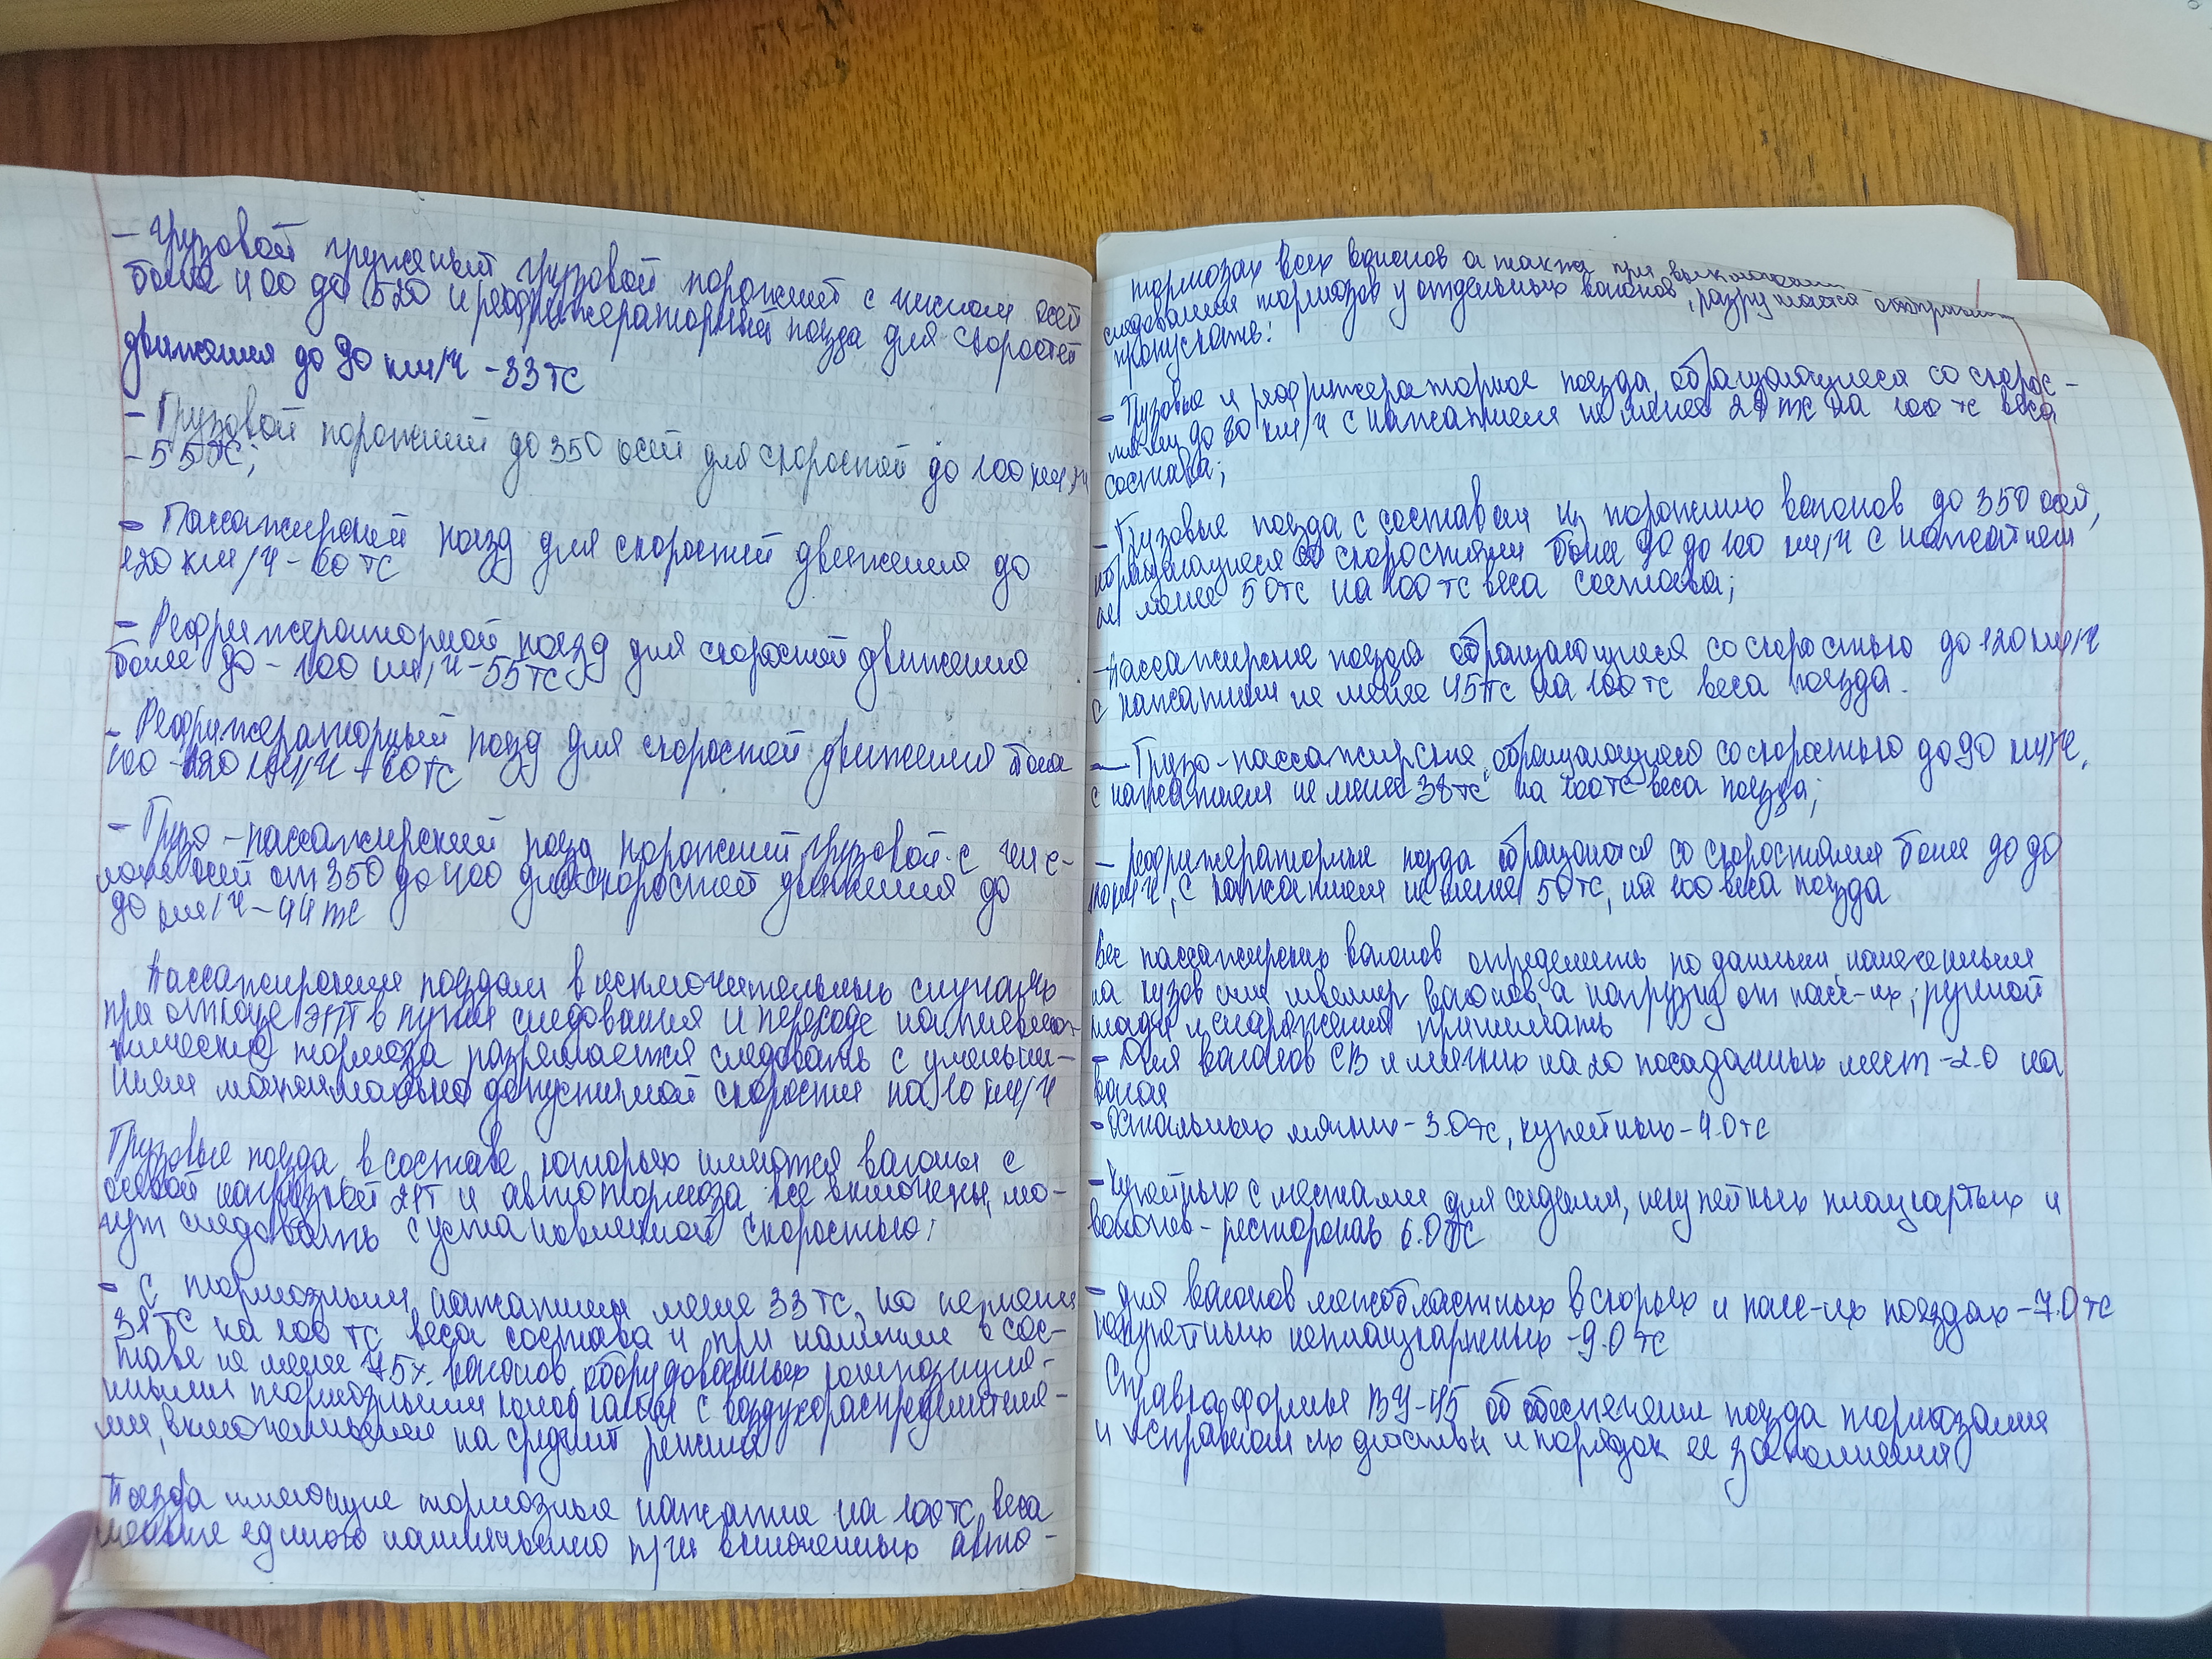 - Грузовой груженый грузовой порожний с числом осей
более 400 до 520 и рефрижераторный поезда для скоростей
движения до 90 км/ч - 33 тс
- Грузовой порожний до 350 осей для скоростей до 100 км/ч
- 55 тс;
- Пассажирский поезд для скоростей движения до
120 км/ч - 60 тс
- Рефрижераторной поезд для скоростей движения
более 90 - 100 км/ч - 55 тс
- Рефрижераторный поезд для скоростей движения более
100 - 120 км/ч - 60 тс
- Грузо-пассажирский поезд порожний грузовой с чис-
лом осей от 350 до 400 для скоростей движения до
90 км/ч - 44 тс
Пассажирским поездам в исключительных случаях
при отказе ЭПТ в пути следования и переходе на пневма-
тические тормоза разрешается следовать с уменьше-
нием максимально допустимой скорости на 10 км/ч
Грузовые поезда, в составе которых имеются вагоны с
осевой нагрузкой 21т и автотормоза все включены, мо-
гут следовать с установленной скоростью:
- С тормозным нажатием менее 33 тс, но не менее
31 тс на 100 тс веса состава и при наличии в сос-
таве не менее 75% вагонов, оборудованных композицион-
ными тормозными колодками с воздухораспределителя-
ми, включенными на средний режим
Поезда имеющие тормозные нажатия на 100 тс веса
менее единого наименьшего при включенных авто-
тормозах всех вагонов а также при выключении
следования тормозов у отдельных вагонов, разрушается отправлять
пропускать:
- Грузовые и рефрижераторные поезда, обращающиеся со скорос-
тями до 80 км/ч с нажатием не менее 28 тс на 100 тс веса
состава;
- Грузовые поезда с составом из порожних вагонов до 350 осей,
обращающиеся со скоростями более 90 до 100 км/ч с нажатием
не менее 50 тс на 100 тс веса состава;
- Пассажирские поезда обращающиеся со скоростью до 120 км/ч
с нажатием не менее 45 тс на 100 тс веса поезда.
- Грузо-пассажирские, обращающиеся со скоростью до 90 км/ч,
с нажатием не менее 38 тс на 100 тс веса поезда;
- рефрижераторные поезда обращаются со скоростями более 90 до
км/ч, с нажатием не менее 50 тс, на 100 веса поезда
Вес пассажирских вагонов определять по данным, нанесенным
на кузов или швеллер вагонов, а нагрузку от пасс-их, ручной
клади и снаряжения принимать
- Для вагонов СВ и мягких на 20 посадочных мест - 2.0 на
вагон
- Остальных мягких - 3.0 тс, купейных - 4.0 тс
- Купейных с местами для сидения, некупейных плацкартных и
вагонов-ресторанов 6.0 тс
- для вагонов межобластных в скорых и пасс-их поездах - 7.0 тс
некупейных неплацкартных - 9.0 тс
Справка формы ВУ-45 об обеспечении поезда тормозами
и исправном их действии и порядок ее заполнения